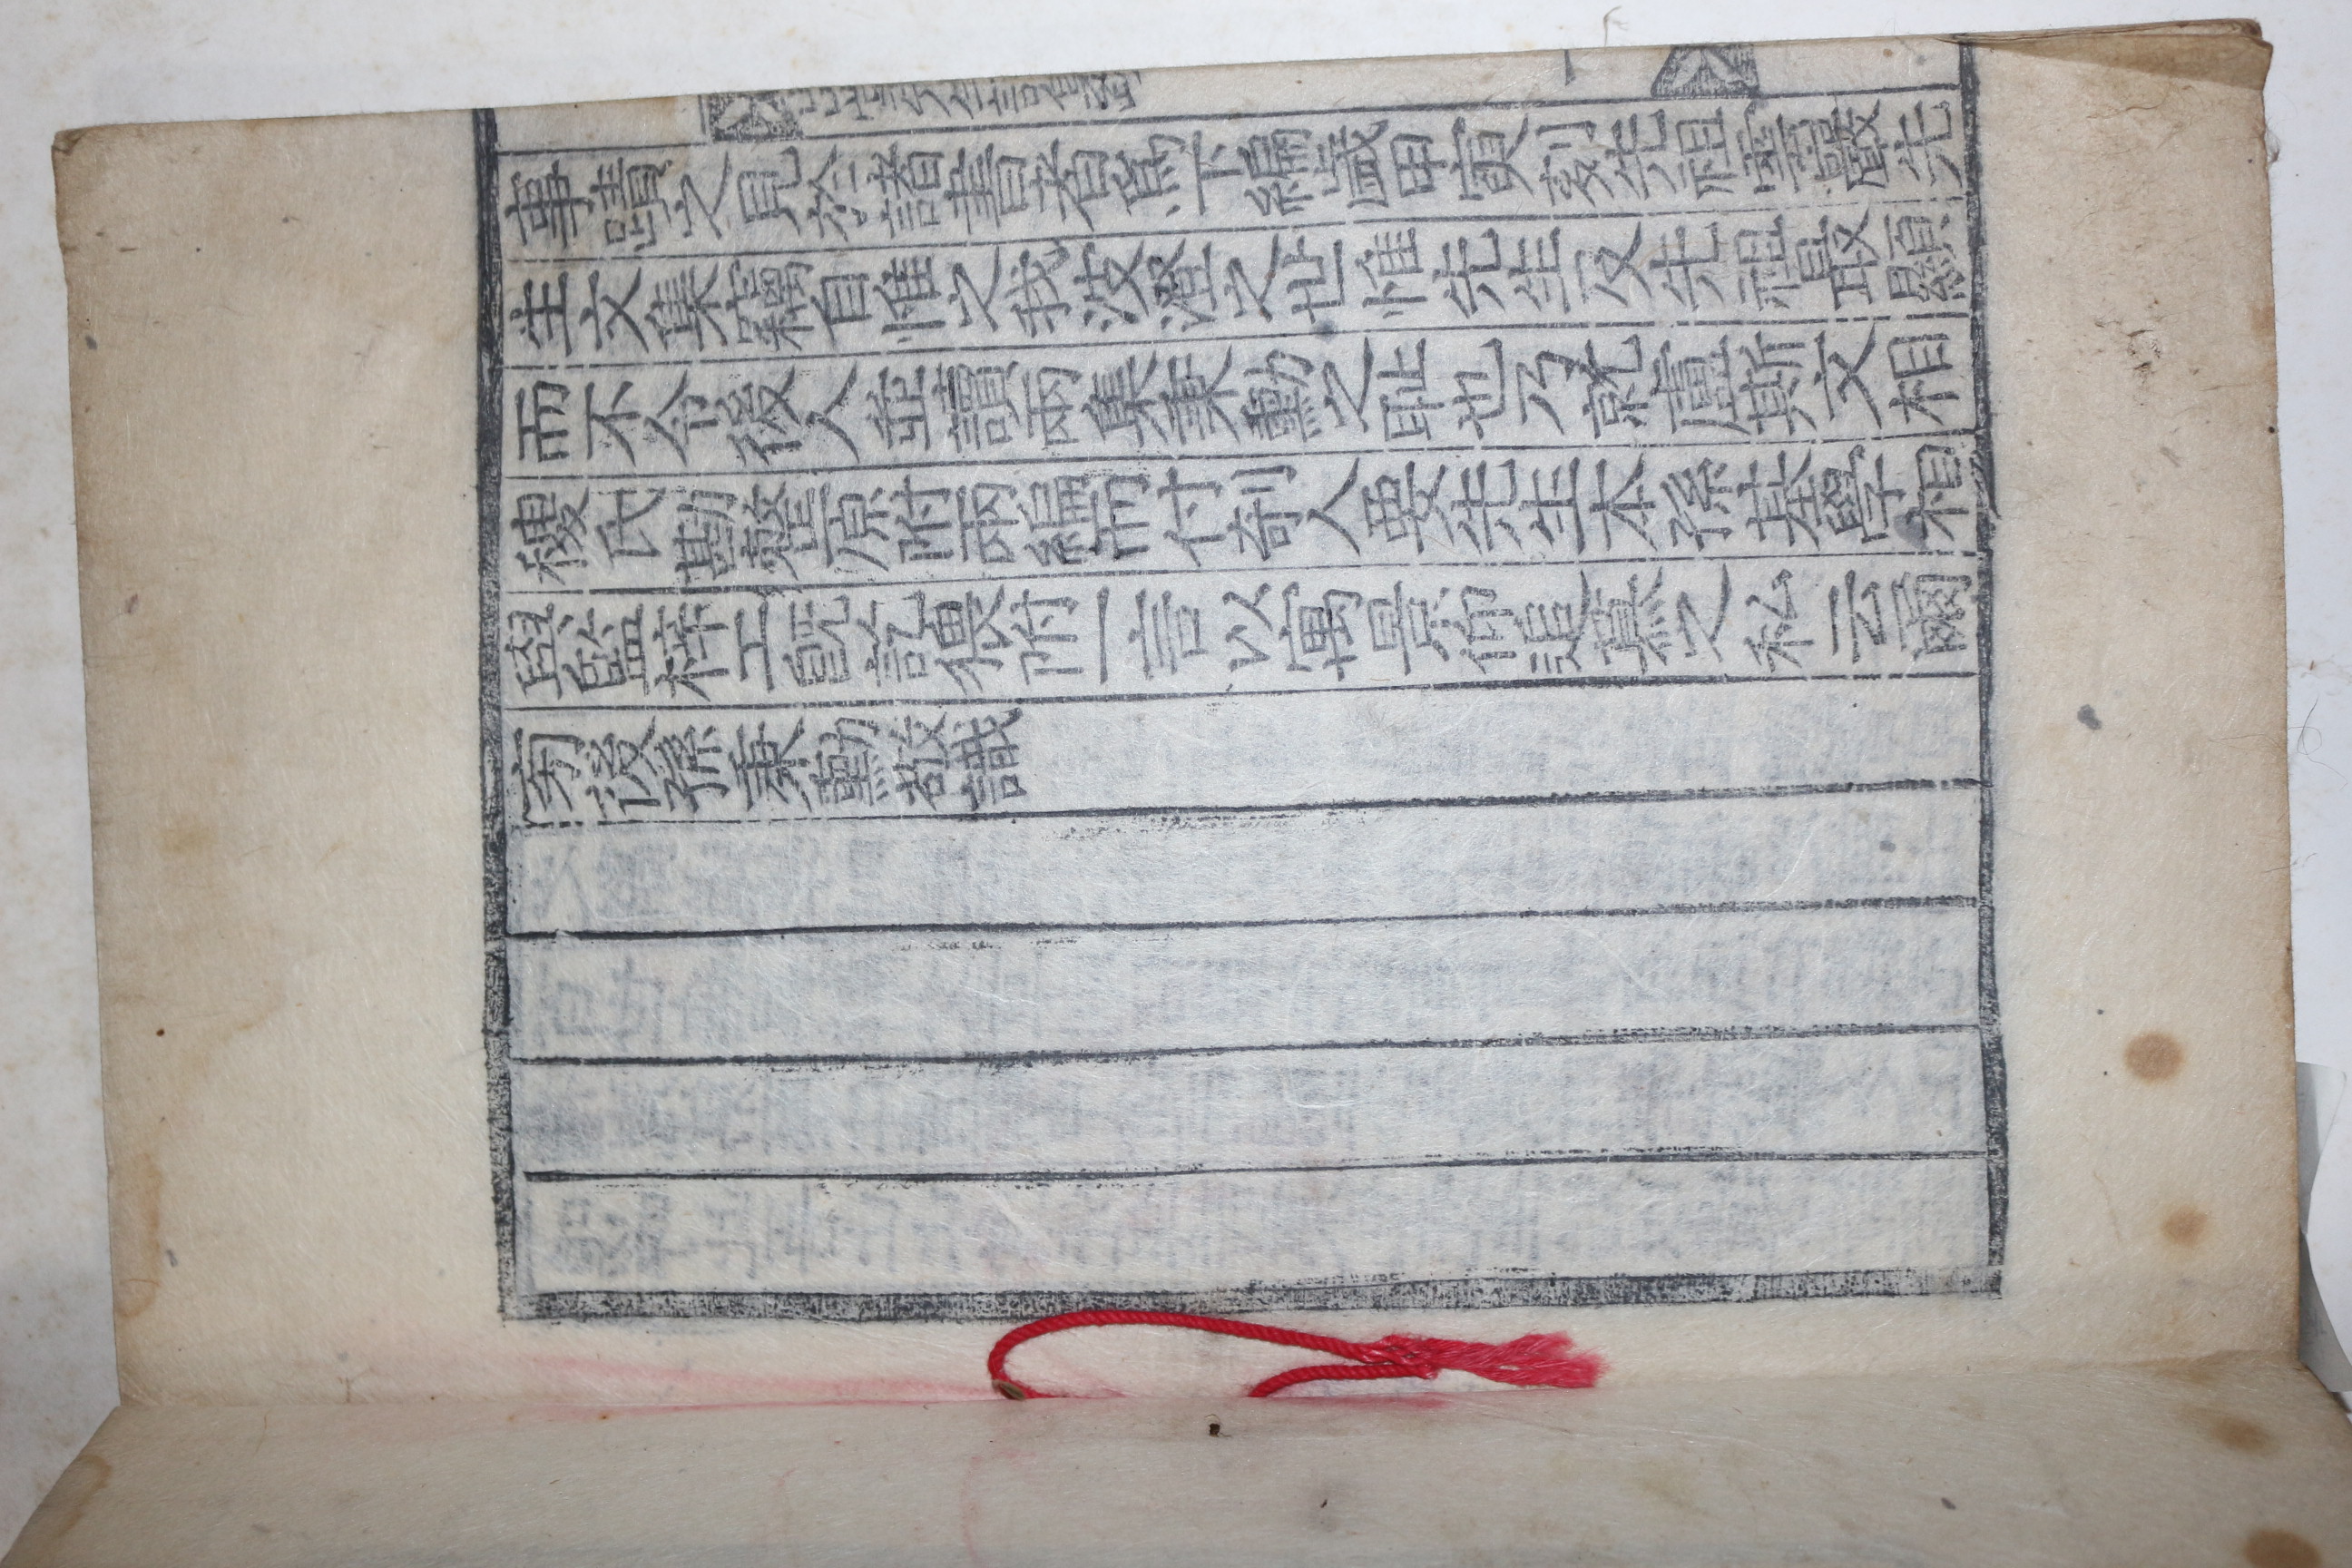 事蹟之見於諸書者爲下編歲甲寅刻先祖雲巖先
生文集竊自惟之我波澄之世惟先生及先祖最顯
而不令後人並讀兩集秉勳之耻也乃就盧斯文相
稷氏勘整原附兩編而付剞人要先生本孫基學相
與監梓工旣訖猥附一言以寓景仰追慕之私云爾
旁後孫秉勳敬識